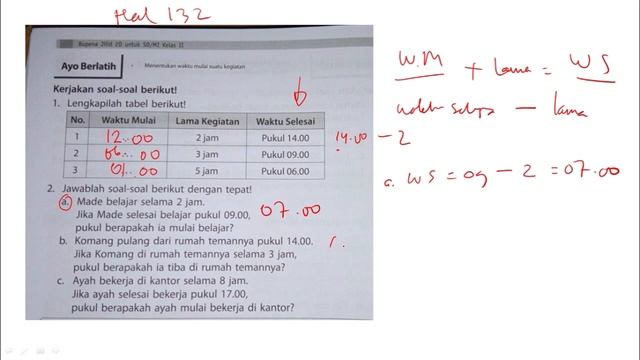 Hal 132
Bupena Jilid 2D untuk SD/MI Kelas II
Ayo Berlatih
Menentukan waktu mulai suatu kegiatan
Kerjakan soal-soal berikut!
1. Lengkapilah tabel berikut!
No. Waktu Mulai Lama Kegiatan Waktu Selesai
1 12.00 2 jam Pukul 14.00 14.00 - 2
2 06.00 3 jam Pukul 09.00
3 01.00 5 jam Pukul 06.00
2. Jawablah soal-soal berikut dengan tepat!
a. Made belajar selama 2 jam.
Jika Made selesai belajar pukul 09.00, 07.00
pukul berapakah ia mulai belajar?
b. Komang pulang dari rumah temannya pukul 14.00.
Jika Komang di rumah temannya selama 3 jam,
pukul berapakah ia tiba di rumah temannya?
c. Ayah bekerja di kantor selama 8 jam.
Jika ayah selesai bekerja pukul 17.00,
pukul berapakah ayah mulai bekerja di kantor?
W.M + Lama = WS
- lama
a. WS = 09 - 2 = 07.00